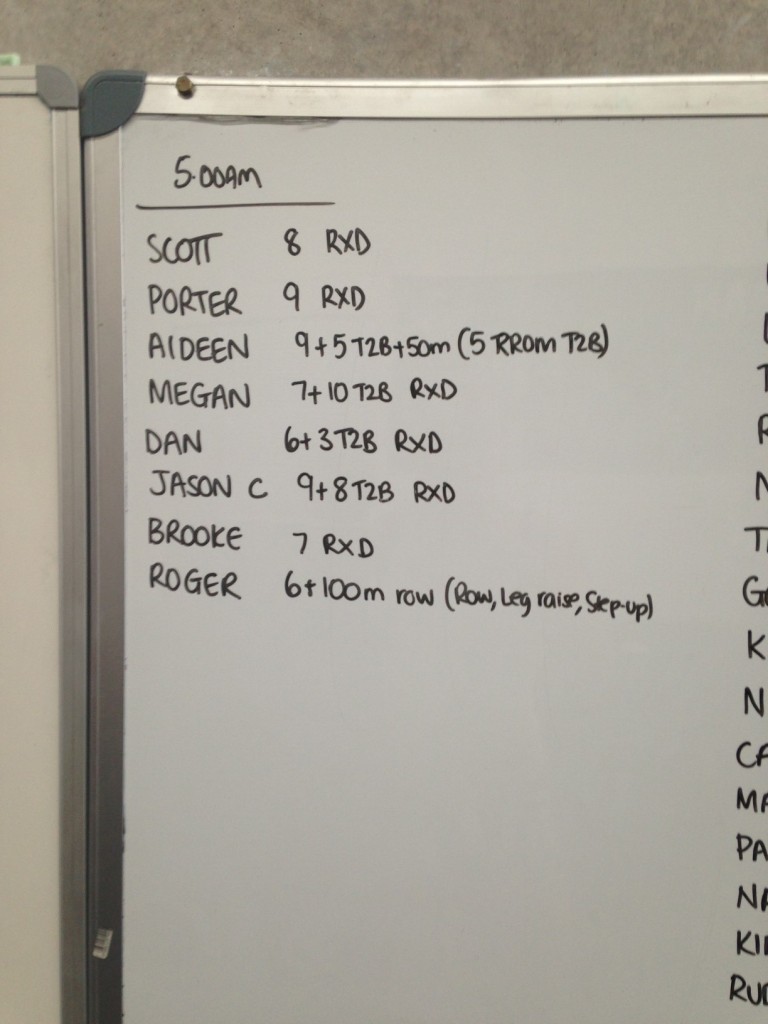 5.00AM
SCOTT 8 RXD
PORTER 9 RXD
AIDEEN 9+5 T2B+50m (5 RROM T2B)
MEGAN 7+10 T2B RXD
DAN 6+3 T2B RXD
JASON C 9+8 T2B RXD
BROOKE 7 RXD
ROGER 6+100m row (Row, Leg raise, Step-up)